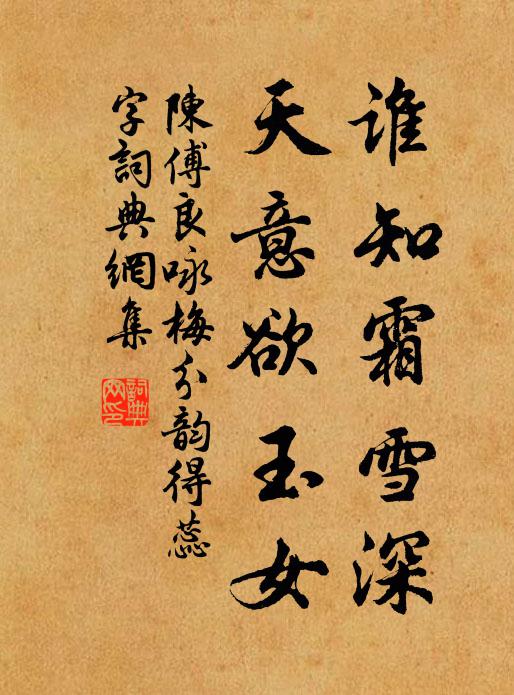 谁知霜雪深
天意欲玉女
陳傅良咏梅分韵得蕊
字詞典網集
詞典网印